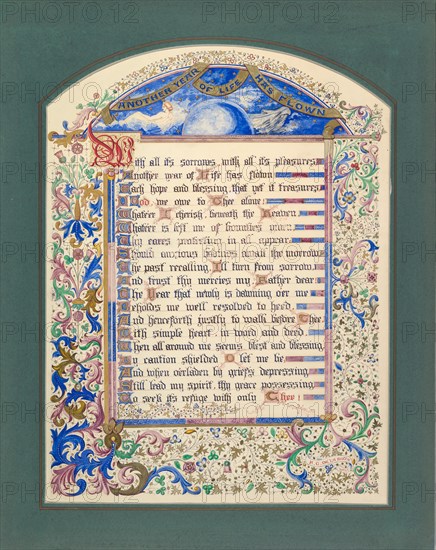 ANOTHER YEAR OF LIFE HAS FLOWN
With all its sorrows, with all its pleasures,
Another year of Life has flown
Each hope and blessing that yet it treasures
God, me owe to Thee alone;
Whate'er I cherish, beneath the Heaven
Whate'er is left me of bounties
cares in all appear
Should anxious bodings the morrow
The past recalling, I'll turn from sorrow
And trust thy mercies my Father dear
The Year that newly is dawning o'er me
Beholds me well resolved to heed
And henceforth justly to walk before Thee
With simple heart in word and deed
When all around me seems blest and blessing,
By caution shielded O let me be
And when o'erladen by griefs depressing,
Still lead my spirit, thy grace possessing,
To seek its refuge with only Thee!
PHOTO12